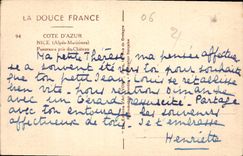 LA DOUCE FRANCE
06
94
COTE D'AZUR
NICE (Alpes-Maritimes)
Panorama pris du Château
Ma petite Thérèse, ma pensée affectueuse
a souvent été vers toi pour souhaiter
que ton petit Jean-Louis se rétablisse
bien vite. Nous rentrons dimanche
avec un Gérard ressuscité. Partage
avec ton entourage les souvenirs
affectueux de tous. Je t'embrasse
Henriette